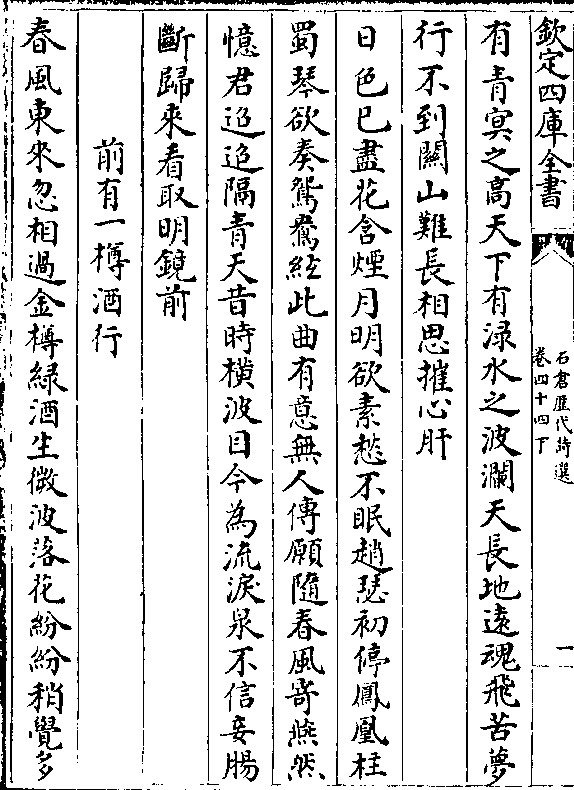 欽定四庫全書
石倉歷代詩選
卷四十四下
一
有青冥之高天下有淥水之波瀾天長地遠魂飛苦夢
行不到關山難長相思摧心肝
日色已盡花含煙月明欲素愁不眠趙瑟初停鳳凰柱
蜀琴欲奏鴛鴦絃此曲有意無人傳願隨春風寄燕然
憶君迢迢隔青天昔時橫波目今為流淚泉不信妾腸
斷歸來看取明鏡前
前有一樽酒行
春風東來忽相過金樽綠酒生微波落花紛紛稍覺多